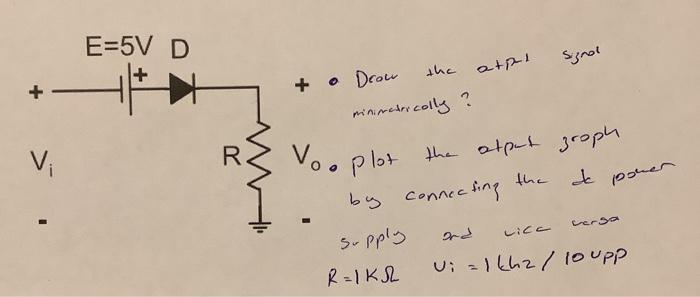 E=5V D
+
+
+
• Draw the output signal
minimetrically ?
Vi
R
Vo
• plot the output graph
by connecting the dc power
-
-
supply and vice versa
R=1KΩ Vi = 1khz / 10Vpp